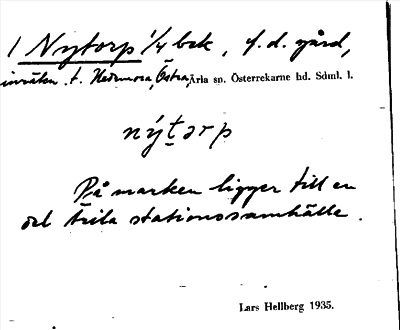 1 Nytorp 1/4 bek, f.d. gård,
inräkn. t. Hedemora, Östra, Ärla sn. Österrekarne hd. Sdml. l.
nýt̲ɔrp
På marken ligger till en
del Ärila stationssamhälle.
Lars Hellberg 1935.